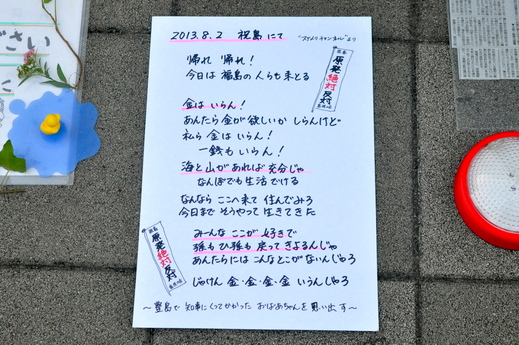 ださい
2013.8.2 祝島にて
"スナメリチャンネル"より
祝島
原発絶対反対
帰れ 帰れ!
今日は 福島の 人らも 来とる
金は いらん!
あんたら 金が 欲しいか しらんけど
私ら 金は いらん!
一銭も いらん!
海と 山が あれば 充分じゃ
なんぼでも 生活できる
なんなら ここへ 来て 住んでみろ
今日まで そうやって 生きてきた
みーんな ここが 好きで
孫も ひ孫も 戻って きよるんじゃ
あんたらには こんなとこが ないんじゃろ
じゃけん 金・金・金・金 いうんじゃろ
原発絶対反対
〜豊島で 知事に くってかかった おばあちゃんを 思い出す〜